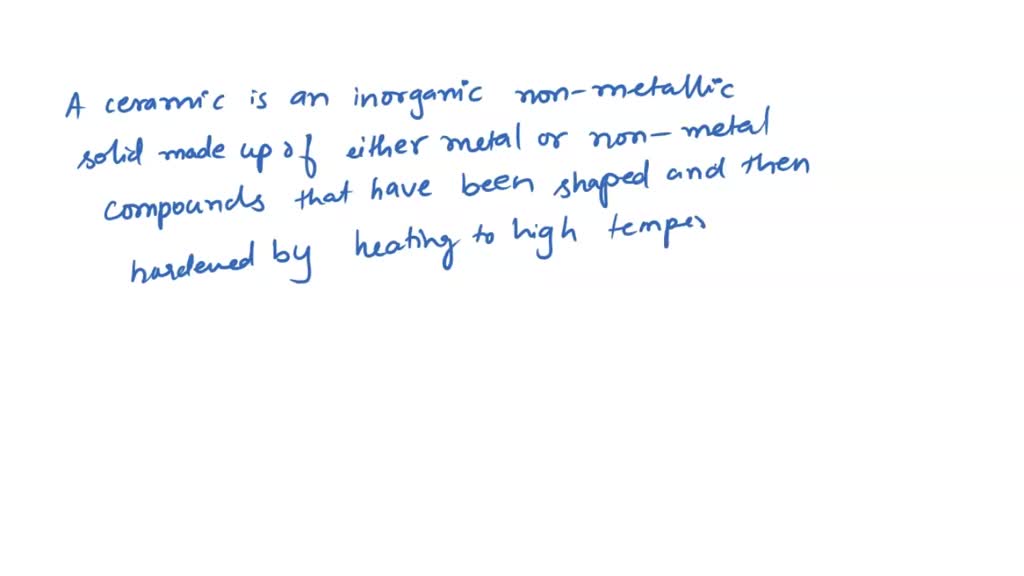 A ceramic is an inorganic non-metallic
solid made up of either metal or non-metal
compounds that have been shaped and then
hardened by heating to high temper